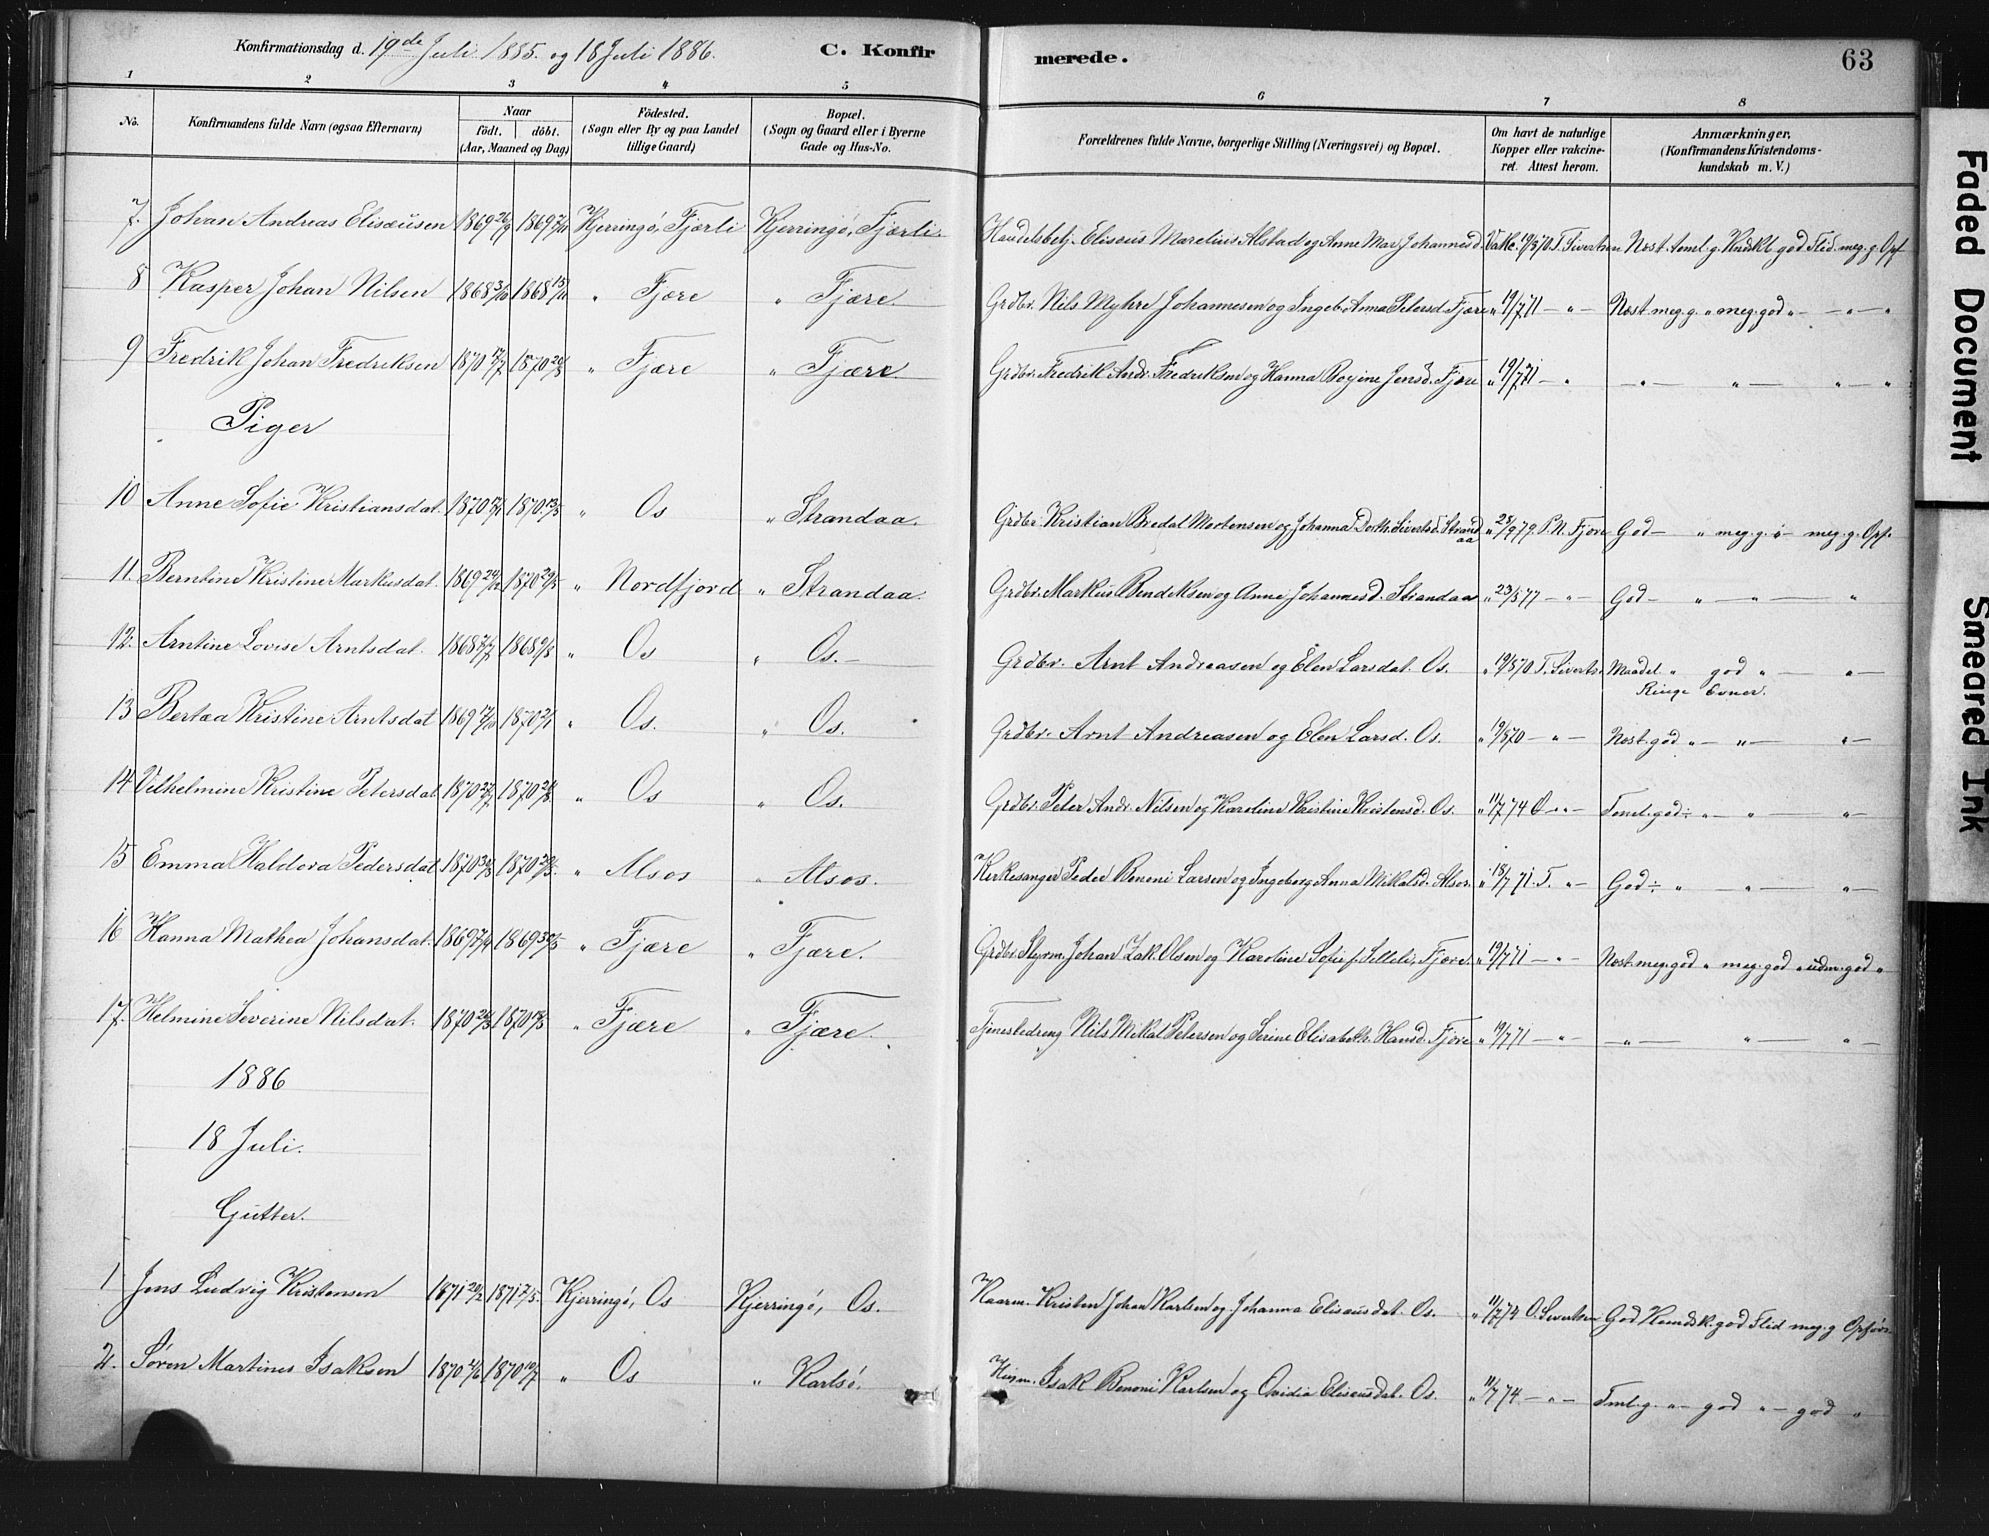 Konfirmationsdag d. 19de Juli 1885. og 18 Juli 1886. C. Konfirmerede. 63
1 2 3 4 5 6 7 8
No. Konfirmandens fulde Navn (ogsaa Efternavn) Naar födt. döbt. (Aar, Maaned og Dag) Födested. (Sogn eller By og paa Landet tillige Gaard) Bopæl. (Sogn og Gaard eller i Byerne Gade og Hus-No. Forældrenes fulde Navne, borgerlige Stilling (Næringsvei) og Bopæl. Om havt de naturlige Kopper eller vakcineret. Attest herom. Anmærkninger, (Konfirmandens Kristendomskundskab m. V.)
7. Johan Andreas Elisæusen 1869 26/9 1869 Kjerringö, Fjærli Kjerringö, Fjærli. Handelsbetj. Elisæus Marelius Alstad og Anne Mar. Johannesd. Vakc. 19/8 70 T. Sivertsen Næst. Teml. g. Kundsk. god Flid. meg. g. Opf
8 Kasper Johan Nilsen 1868 3/10 1868 15/11 " Fjære " Fjære. Grdbr. Nils Myhre Johannesen og Ingeb. Anna Petersd. Fjære " 19/7 71 — " — Næst meg. g. " meg. god " — " — "
9 Fredrik Johan Fredriksen 1870 1870 " Fjære " Fjære. Grdbr. Fredrik Andr. Fredriksen og Hanna Bogine Jensd. Fjære " 19/7 71 — " — " — " — " "
Piger
10 Anne Sofie Kristiansdat. 1870 1870 13/5 " Os " Strandaa. Grdbr. Kristian Bredal Mortensen og Johanna Dorth. Sivertsd. Strandaa " 25/9 79 P. N. Fjære God — " meg. g. " — meg. g. Opf.
11. Berntine Kristine Markusdat. 1869 24/12 1870 29/5 " Nordfjord " Strandaa. Grdbr. Markus Bendiksen og Anne Johannesd. Strandaa " 23/8 77 — " — God — " — " — "
12. Arntine Lovise Arntsdat. 1868 1868 " Os " Os. — Grdbr. Arnt Andreasen og Elen Larsdat. Os. " 19/8 70 T. Sivertsn Maadel. " god " — " —
Ringe Evner.
13 Bertaa Kristine Arntsdat 1869 17/10 1870 2/1 " Os. " Os. Grdbr. Arnt Andreasen og Elen Larsd. Os. " 19/8 70 — " — Næst. god " — " — " —
14 Vilhelmine Kristine Petersdat 1870 1870 " Os " Os. Grdbr. Peter Andr. Nilsen og Karoline Kristine Kristensd. Os. " 11/7 74 O — " — Teml. god — " — " — " —
15 Emma Haldora Pedersdat 1870 1870 " Alsos " Alsos. Kirkesanger Peder Benoni Larsen og Ingeborg Anna Mikalsd. Alsos. " 18/7 71. T. " — God — " — " — " —
16 Hanna Mathea Johansdat. 1869 1869 " Fjære " Fjære. Grdbr. Styrm. Johan Zak. Olsen og Karoline Sofie f. Selleli, Fjære. " 19/7 71 — " — Næst. meg. god " meg. god " udm. god "
17. Helmine Severine Nilsdat. 1870 1870 " Fjære " Fjære. Tjenestedreng Nils Mikal Petersen og Serine Elisabeth Hansd. Fjære " 19/7 71 — " — — " — " — " —
1886
18 Juli.
Gutter.
1 Jens Ludvig Kristensen 1871 20/2 1871 7/5. Kjerringö, Os Kjerringö, Os. Kaarm. Kristen Johan Karlsen og Johanna Elisæusdat. Os. " 11/7 74 O. Sivertsen God Kundsk. god Flid meg. g Opförs.
2. Sören Martines Isaksen 1870 1870 10/7 " Os " Karlsö. Husm. Isak Benoni Karlsen og Ovidia Elisæusdat. Os. " 11/7 74. — " — Teml. g. " — god " — god "
Faded Document
Smeared Ink